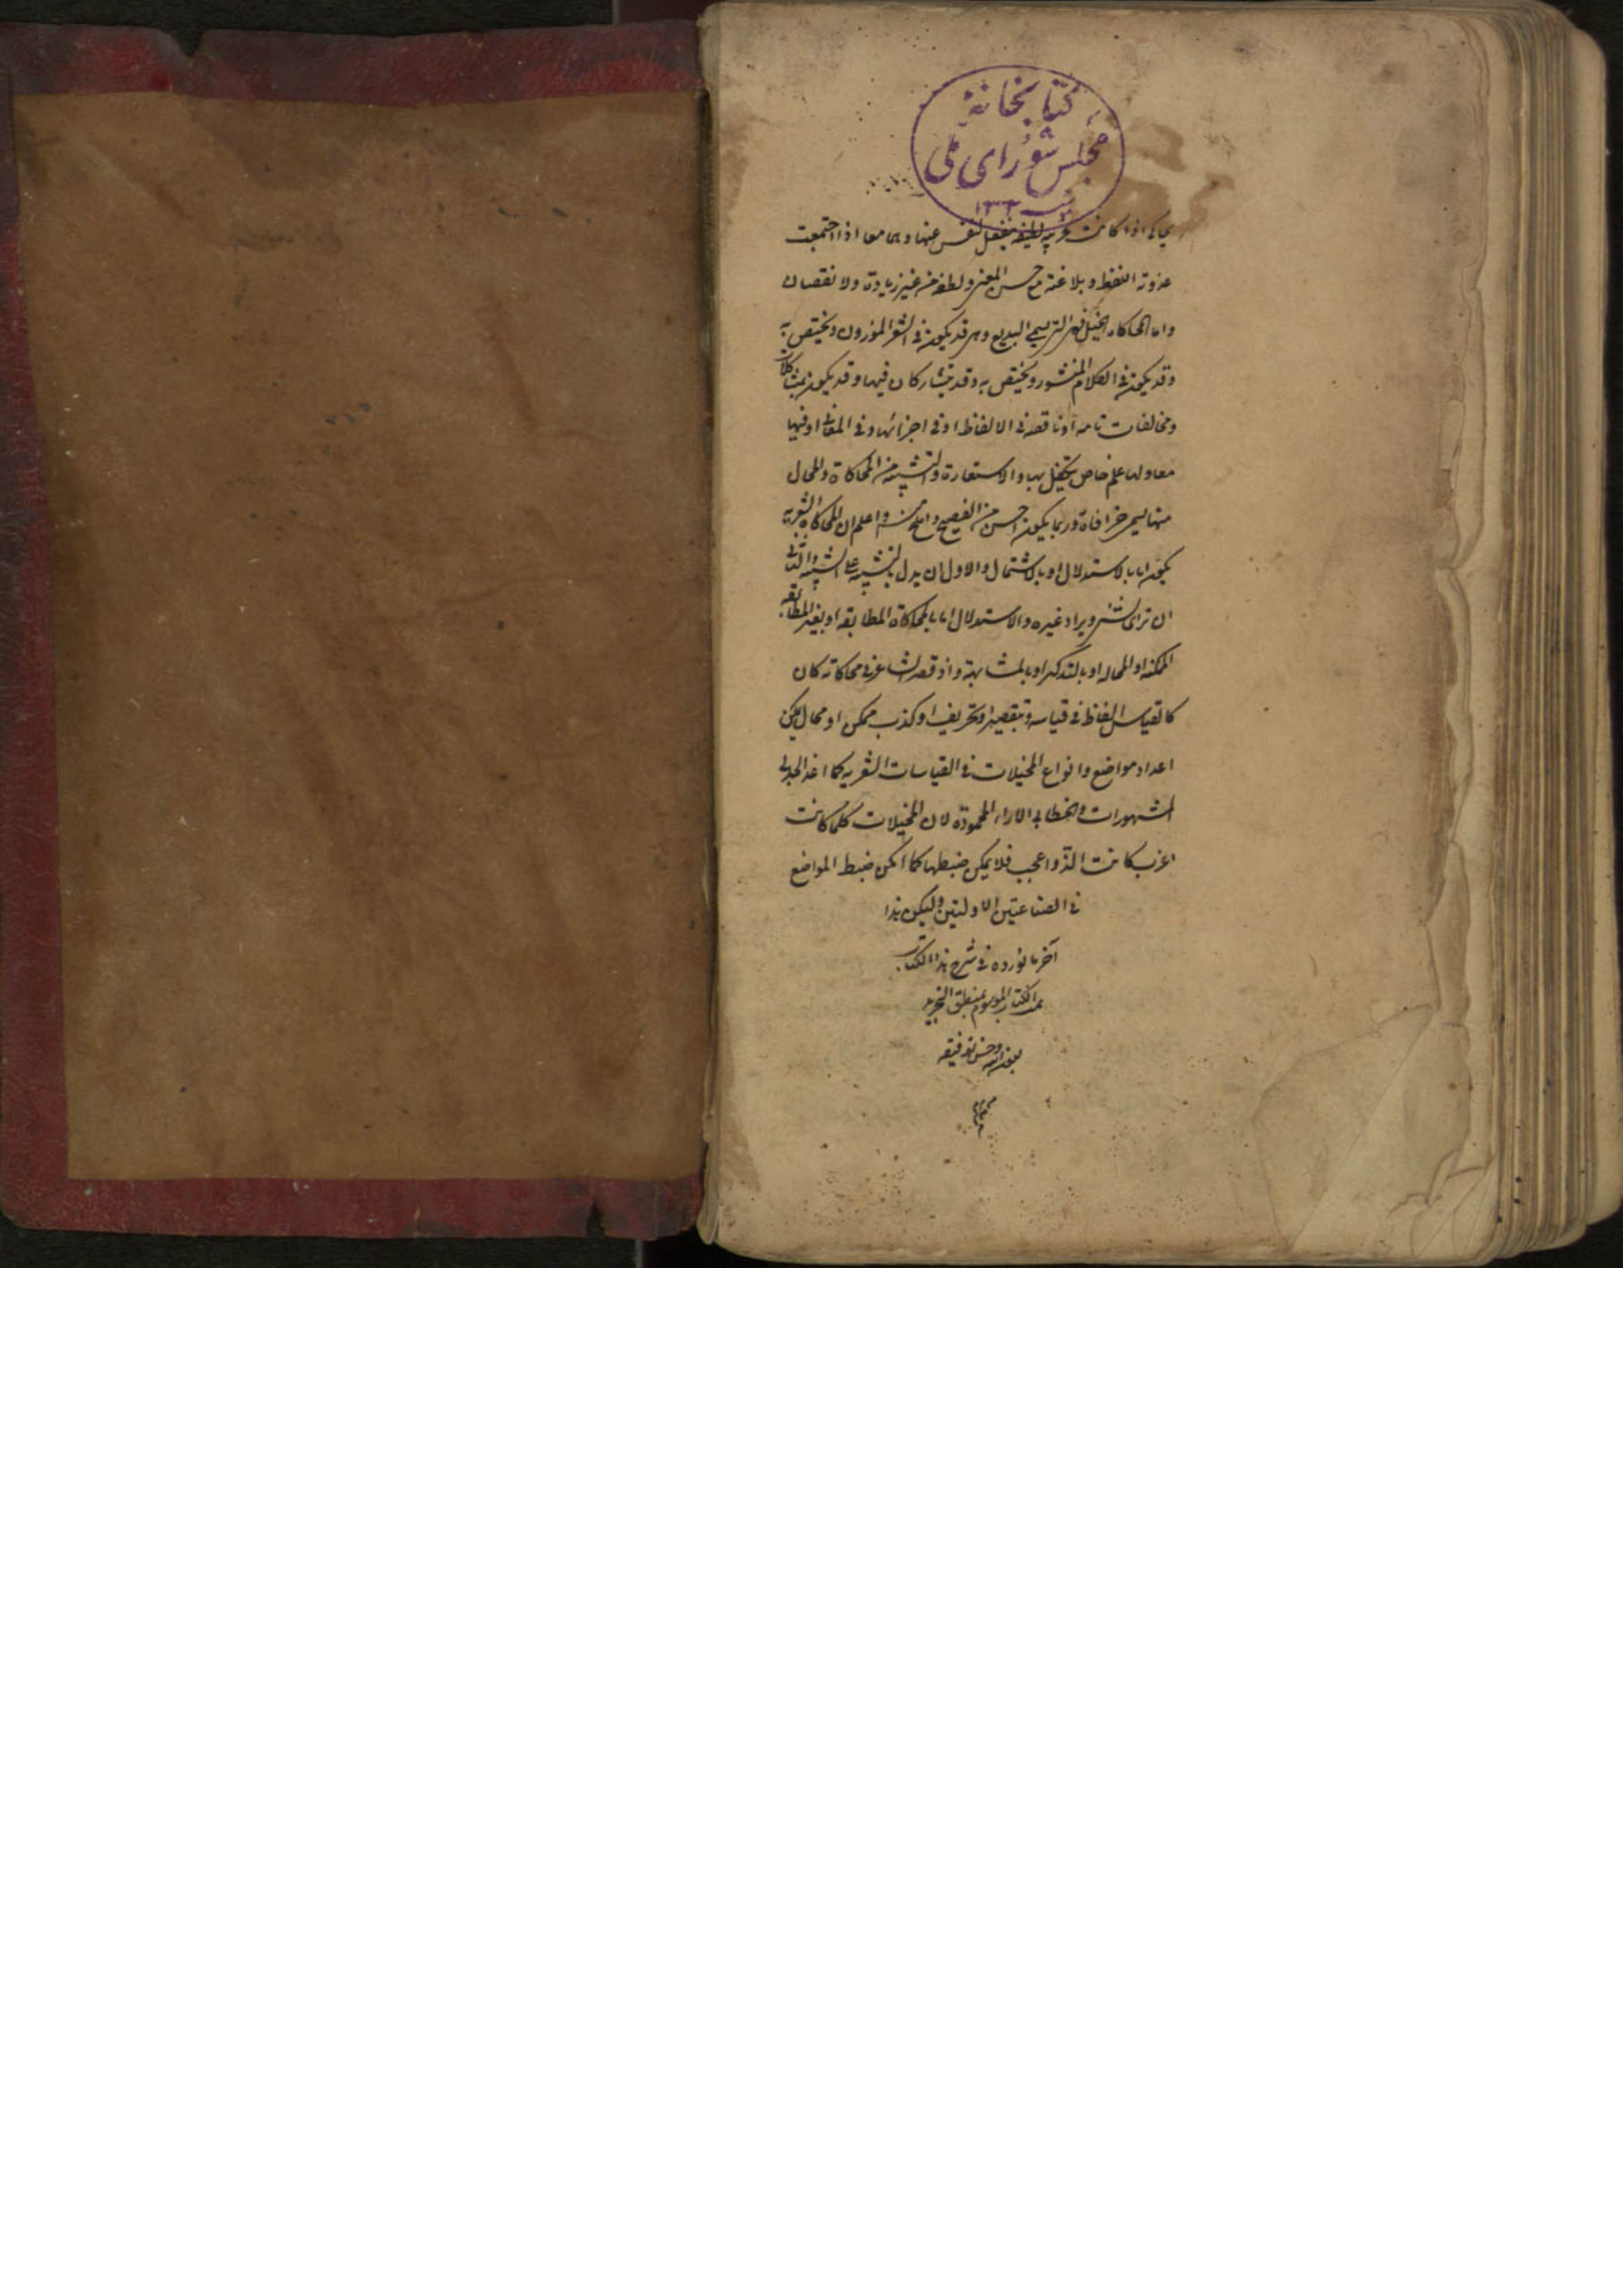 كتابخانهٔ
مجلس شورای ملی
١٣٠٢
اذا كانت غريبة لطيفة ينفعل النفس عنها وهما معا اذا اجتمعت
عذوبة اللفظ وبلاغته مع حسن المعنى ولطفه من غير زيادة ولا نقصان
واما المحاكاة البديع وهى قد يكون فى الشعر الموزون ويختص به
وقد يكون فى الكلام المنثور ويختص به وقد يتشاركان فيها وقد يكون بمشاكلات
ومخالفات تامه او ناقصه فى الالفاظ او فى اجزائها وفى المعانى او فيها
معا ولها علم خاص يتكفل بها والاستعارة والتشبيه من المحاكاة والمحال
منها يسمى خرافاة وربما يكون احسن من الفصيح واملح منه واعلم ان المحاكاة الشعرية
يكون اما بالاستدلال او بالاشتمال والاول ان يدل بالتشبيه على الشبيه والثانى
ان ترائى شىء ويراد غيره والاستدلال اما بالمحاكاة المطابقه او بغير المطابقه
الممكنه او المحاله او بالتذكير او بالمشابهة واذ قصر الشاعر فى محاكاته كان
كالقياس الغالط فى قياسه وتقصير او تحريف او كذب ممكن او محال يمكن
اعداد مواضع وانواع المخيلات فى القياسات الشعريه كما اعد الجدلى
المشهورات والخطابى الاراء المحمودة لان المخيلات كلما كانت
اغرب كانت الذ واعجب فلا يمكن ضبطها كما امكن ضبط المواضع
فى الصناعتين الاولتين وليكن هذا
آخر ما نورده فى شرح هذا الكتاب
تمت الكتاب الموسوم بمنطق التجريد
بعون الله وحسن توفيقه